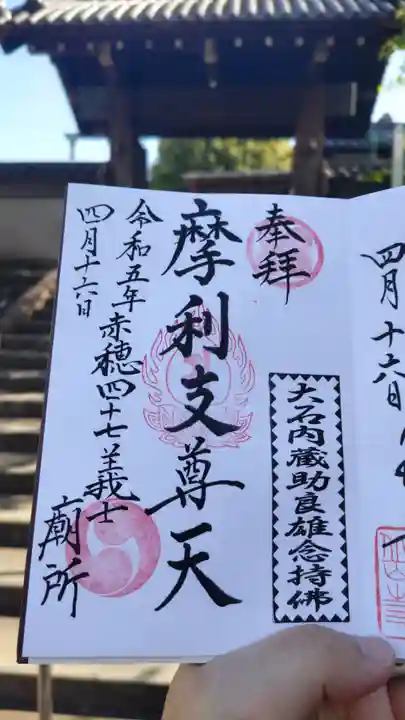 四月十六日
奉拝
大石内蔵助良雄念持佛
摩利支尊天
令和五年
赤穂四十七義士
四月十六日
廟所